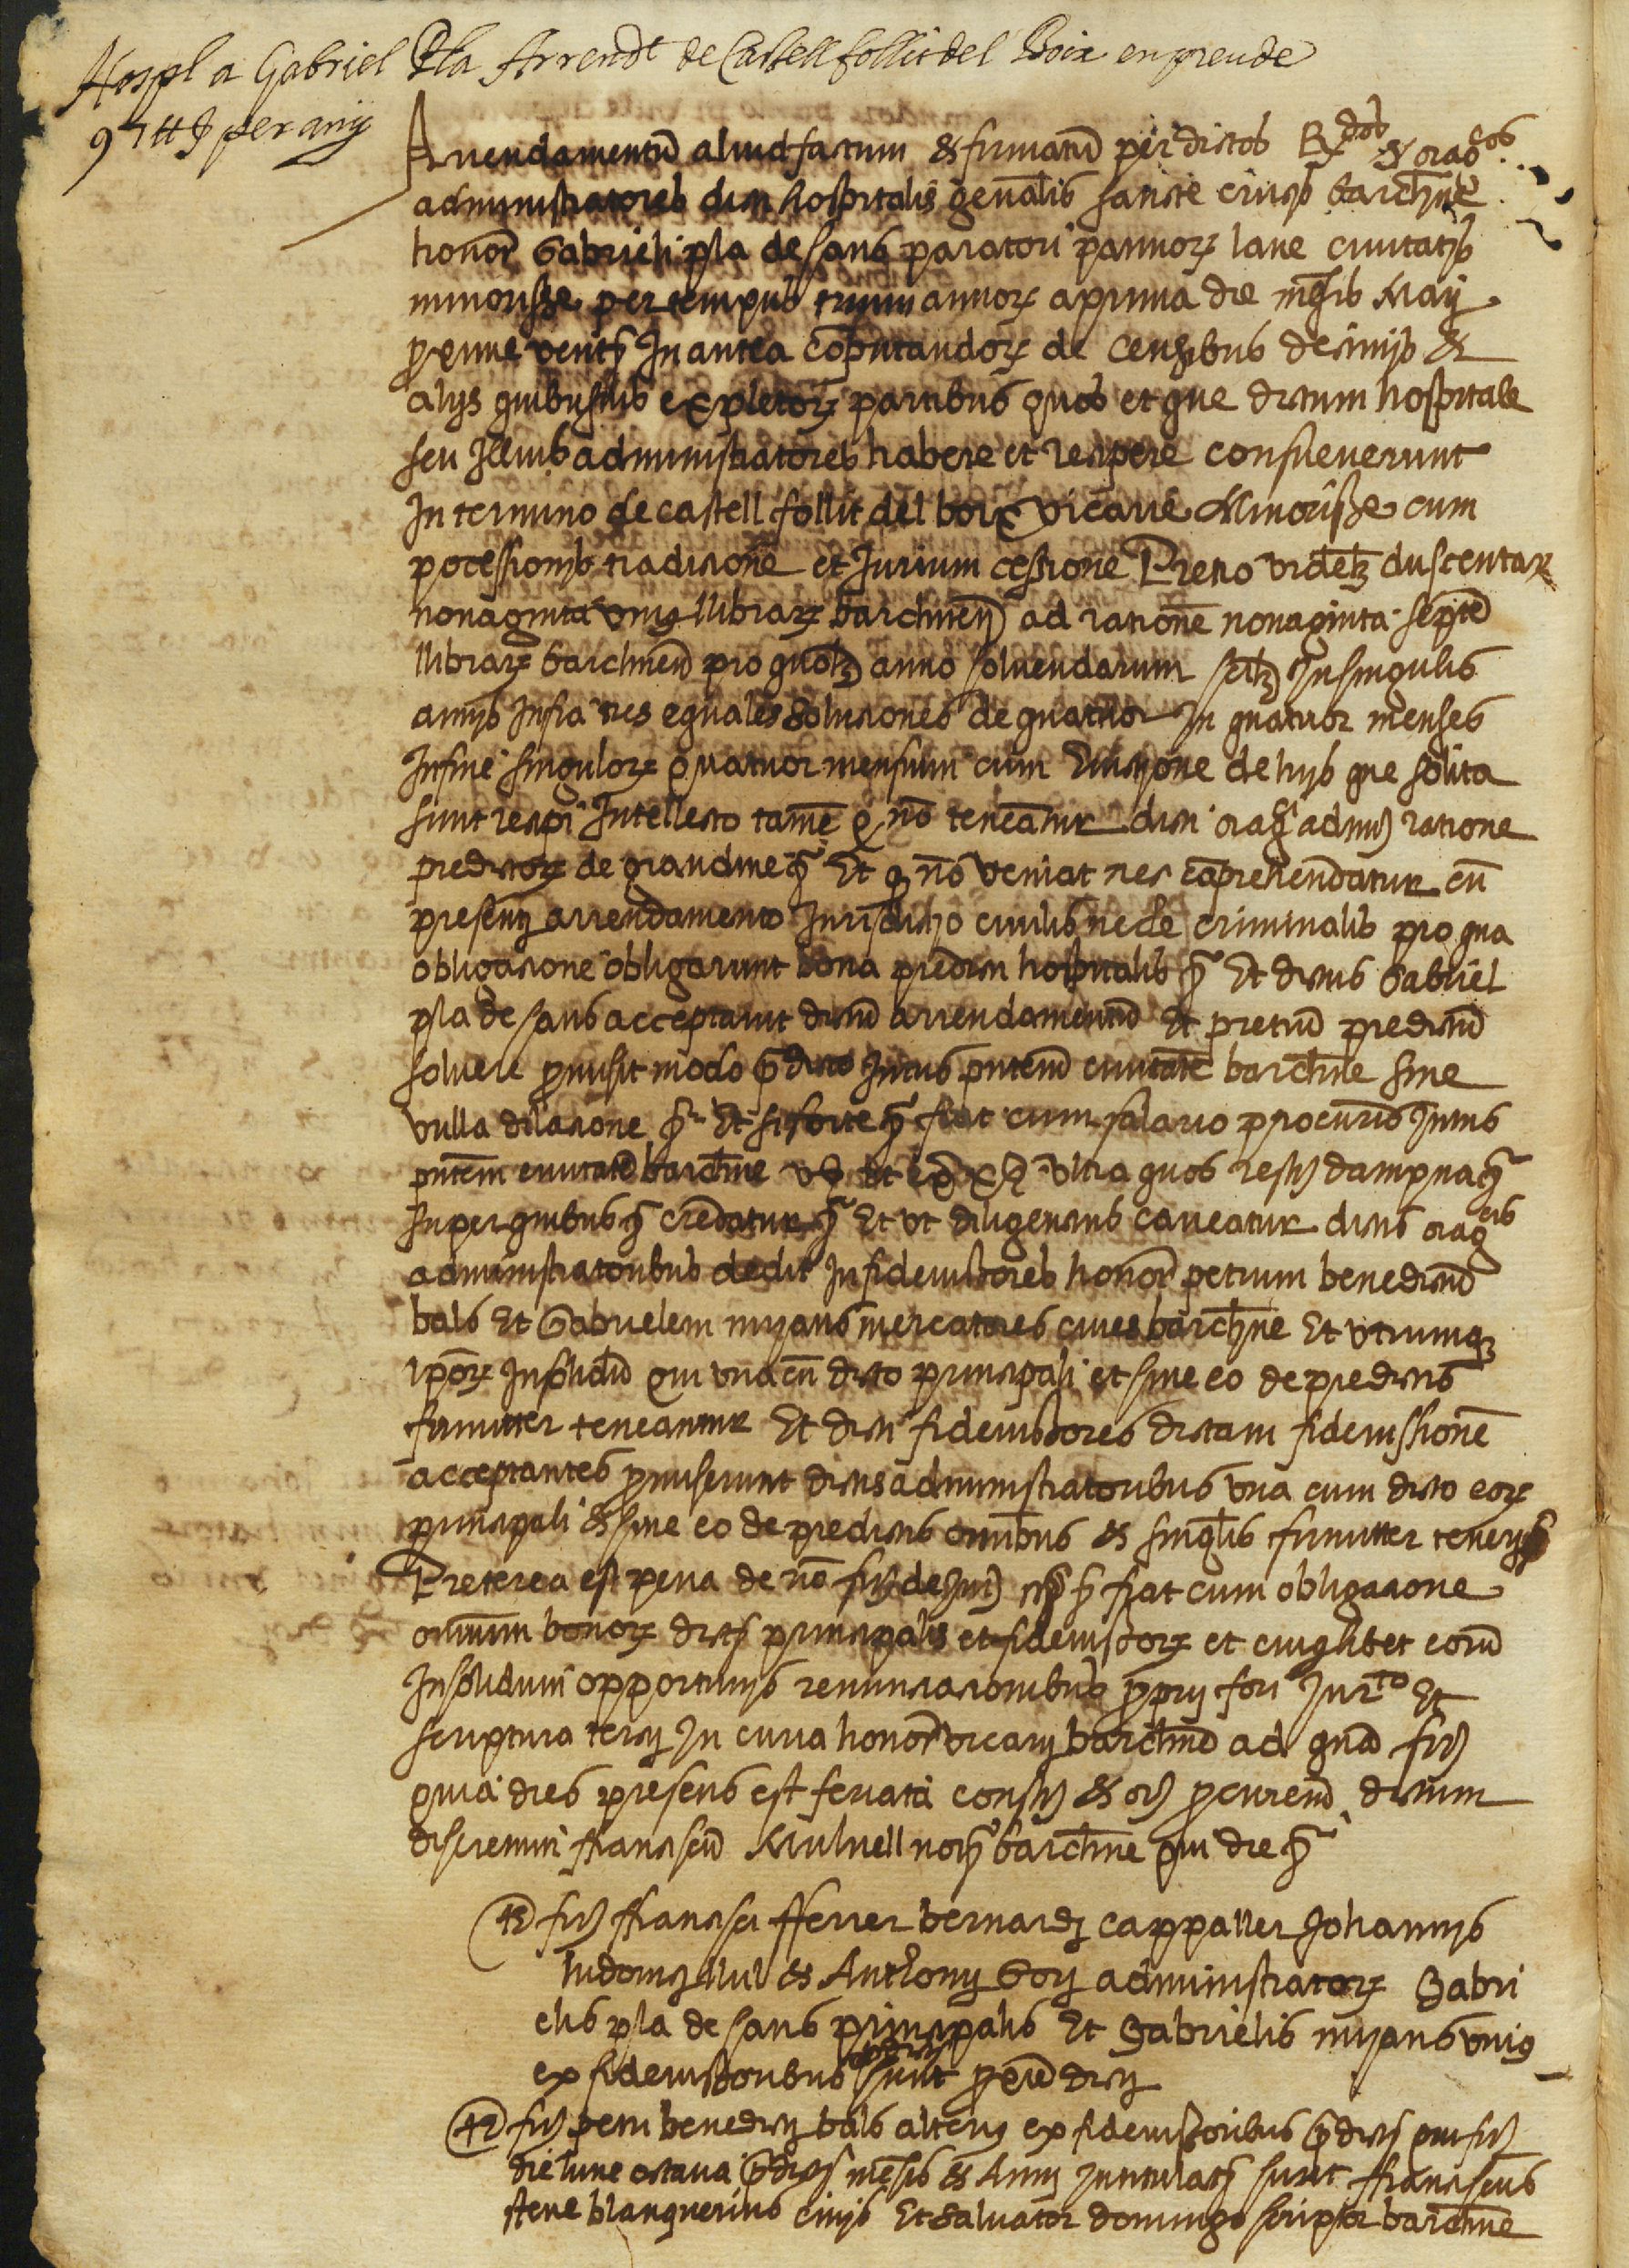 Hospl a Gabriel Pla Arrendt de Castellfollit del Boix en prende
97 ll per any
Arrendamentũ aliud factum & firmatũ per dictos Rdos & mag cos
administratores dicti hospitalis genãlis sancte crucis barchne
honor Gabrieli pla de sans paratori pannorz lane civitatis
minorisse per tempus trium annorz a prima die mensis Maij
proxime vent In antea computandorz de censibus decimis &
alijs quibusvis expletorz partibus quos et que dictum hospitale
seu Illius administratores habere et recipere consueverunt
In termino de castell follit del boix vicarie Minorisse cum
pocessionis tradicione et Jurium cessione Precio videlz duscentar
nonaginta unius llibrarz barchinen ad rationẽ nonaginta septẽ
llibrarz barchinen pro quolz anno solvendarum scilz In singulis
annis Infra tres equales soluciones de quatuor In quatuor menses
In fine singulorz quatuor mensium cum Evictione de hijs que solita
sunt recipi Intellecto tamẽ q nõ teneãtur dicti mag admi racione
predictorz de grandine & Et q nõ veniat nec comprehendatur cũ
presenti arrendamento Jurisdictio civilis nec de criminalis pro qua
obligacione obligarunt bona predicti hospitalis & Et dictus Gabriel
pla de sans acceptavit dictũ arrendamentũ Et pretiũ predictũ
solvere promisit modo predicto Intus pñtem civitatẽ barchne sine
vulla dilacione & Et si forte & fiat cum salario procuris Intus
pñtem civitatẽ barchne ultra quos restis dampna &
super quibus & credatur & Et ut diligencius caveatur dictis mag cis
administratoribus dedit In fideiussores honor petrum benedictũ
bals Et Gabrielem mijans mercatores cives barchne Et utrumqz
ipsorz In solidũ qui una cũ dicto principali et sine eo de predictis
firmiter teneantur Et dicti fideiussores dictam fideiussionẽ
acceptantes promiserunt dictis administratoribus una cum dicto eorz
principali & sine eo de predictis omnibus & singlis firmiter teneri &
Preterea est pena de nõ fir de & & fiat cum obligacione
omnium bonorz dicti principalis et fideiussorz et cuiuslibet eorũ
In solidum opportunis renunciacionibus proprij fori Jur to Et
scriptura tercij In curia honor vicarij barchne ad quã fir
quia dies presens est feriata consti & or procurem dictum
discretum franciscũ Mulnell not barchne qui die &
ts fir ffrancisci fferrer bernardi cappaller Johannis
ludovici llull & Anthonij Gori administratorz Gabri
elis pla de sans principalis Et Gabrielis mijans unius
ex fideiussoribus predictis sunt proxẽ dicti
ts fir petri benedicti bals alterius ex fideiussoribus predictis qui fir
die lune octava predictis mensis & Anni Intitulatis sunt ffranciscus
stene blanquerius civis Et Salvator domingo scriptor barchne